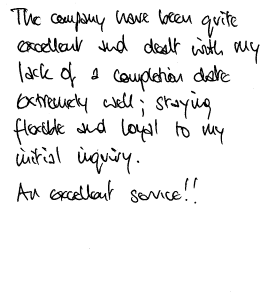 The company have been quite
excellent and dealt with my
lack of a completion date
extremely well; staying
flexible and loyal to my
initial inquiry.
An excellent service!!